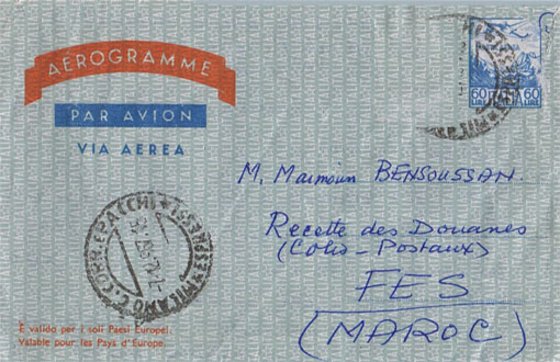 AEROGRAMME
PAR AVION
VIA AEREA
60 ITALIA 60
LIRE LIRE
M. Maimoun BENSOUSSAN.
Recette des Douanes
(Colis-Postaux)
FES
(MAROC)
MILANO C. CORR. E PACCHI
È valido per i soli Paesi Europei.
Valable pour les Pays d'Europe.